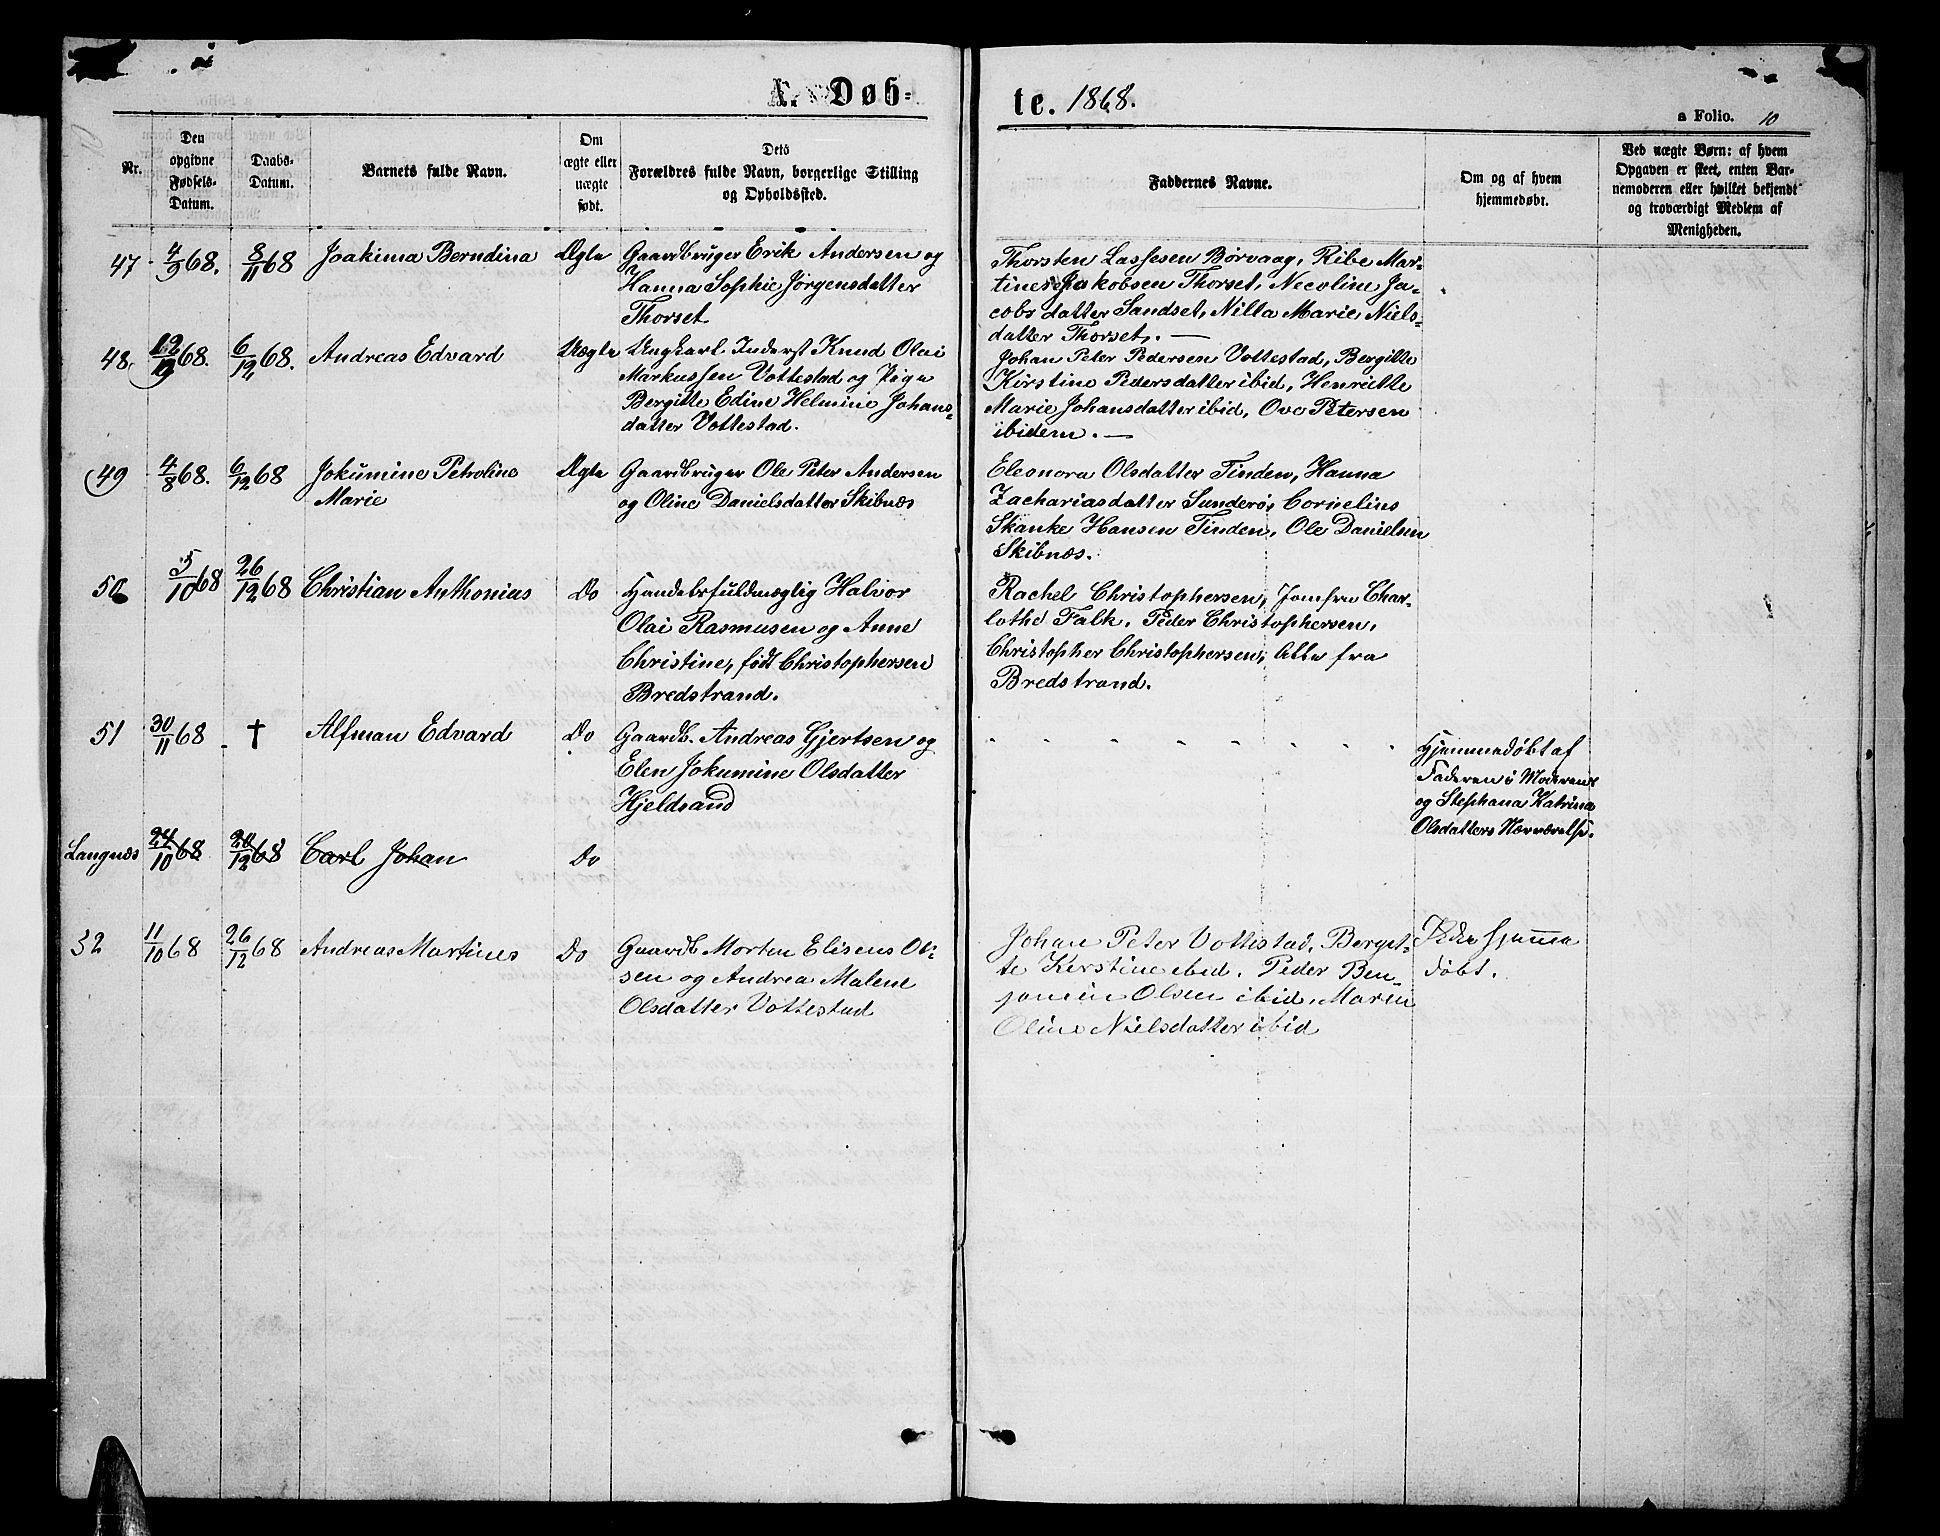 A. Døb-
te. 1868.
a Folio. 10
Nr.
Den
opgivne
Fødsels-
Datum.
Daabs-
Datum.
Barnets fulde Navn.
Om
ægte eller
uægte
født.
Dets
Forældres fulde Navn, borgerlige Stilling
og Opholdssted.
Faddernes Navne.
Om og af hvem
hjemmedøbt.
Ved uægte Børn: af hvem
Opgaven er skeet, enten Bar-
nemoderen eller hvilket bekjendt
og troværdigt Medlem af
Menigheden.
47 4/9 68. 8/11 68 Joakima Berndina Ægte
Gaardbruger Erik Andersen og
Hanna Sophie Jörgensdatter
Thorset
Thorsten Lassesen Börvaag, Ribe Mar-
tines Jakobsen Thorset, Necoline Ja-
cobs datter Sandset, Nilla Marie Niels-
datter Thorset. —
48. 68. 6/12 68. Andreas Edvard Uægte
Ungkarl Inderst Knud Olai
Markussen Vottestad og Pige
Bergitte Edine Helmine Johans-
datter Vottestad.
Johan Peter Pedersen Vottestad, Bergitte
Kirstine Pedersdatter ibid, Henriette
Marie Johansdatter ibid, Ove Petersen
ibidem. —
49 4/8 68. 6/12 68 Jokumine Petroline
Marie
Ægte
Gaardbruger Ole Peter Andersen
og Oline Danielsdatter Skibnæs
Eleonora Olsdatter Tinden, Hanna
Zachariasdatter Sunderö, Cornelius
Skanke Hansen Tinden, Ole Danielsen
Skibnæs.
50 5/10 68 26/12 68 Christian Anthonius Do
Handelsfuldmægtig Halvor
Olai Rasmusen og Anne
Christine, født Christophersen
Bredstrand.
Rachel Christophersen, Jomfru Char-
lothe Falk, Peder Christophersen,
Christopher Christophersen, Alle fra
Bredstrand.
51 30/11 68 † Alfman Edvard Do
Gaardb. Andreas Gjertsen og
Elen Jokumine Olsdatter
Hjeldsand
Hjemmedöbt af
Faderen i Moderens
og Stephana Katrina
Olsdatters Nærværelse.
Langnæs 24/10 68 20/12 68 Carl Johan Do
52 11/10 68 26/12 68 Andreas Martines Do
Gaardb Morten Elisens Ol-
sen og Andrea Malene
Olsdatter Vottestad
Johan Peter Vottestad, Bergit-
te Kerstine ibid. Peder Ben-
jamin Olsen ibid, Maren
Oline Nielsdatter ibid
Ikke hjemme
döbt.